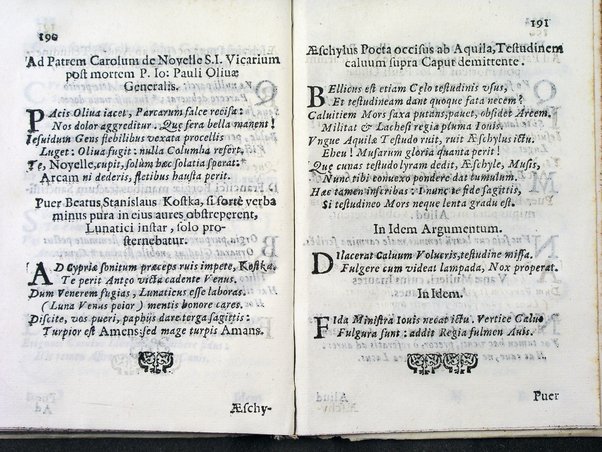 190
Ad Patrem Carolum de Noyelle S.I. Vicarium
post mortem P. Io: Pauli Oliuæ
Generalis.
PAcis Oliua iacet, Parcarum falce recisa:
Nos dolor aggreditur. Quę fera bella manent!
Iesuidum Gens flebilibus vexata procellis
Luget: Oliua fugit: nulla Columba refert,
Te, Noyelle, cupit, solùm hæc solatia sperat:
Arcam ni dederis, fletibus hausta perit.
Puer Beatus Stanislaus Kostka, si fortè verba
minus pura in eius aures obstreperent,
Lunatici instar, solo pro-
sternebatur.
AD Cypriæ sonitum præceps ruis impete, Kostka.
Te perit Antęo victa cadente Venus.
Dum Venerem fugias, Lunaticus esse laboras.
(Luna Venus peior) mentis honore cares.
Discite, vos pueri, paphijs dare terga sagittis:
Turpior est Amens: sed mage turpis Amans.
Æschy-
191
Æschylus Poeta occisus ab Aquila, Testudinem
caluum supra Caput demittente.
BEllicus est etiam Cęlo testudinis vsus,
Et testudineam dant quoque fata necem?
Caluitiem Mors saxa putans, pauet, obsidet Arcem,
Militat & Lachesi regia pluma Iouis.
Vngue Aquilæ Testudo ruit, ruit Æschylus ictu.
Eheu! Musarum gloria quanta perit!
Quę cunas testudo lyram dedit, Æschyle, Musis,
Nunc tibi conuexo pondere dat tumulum.
Hæc tamen inscribas: I nunc ne fide sagittis,
Si testudineo Mors neque lenta gradu est.
In Idem Argumentum.
DIlacerat Caluum Volucris, testudine missa.
Fulgere cum videat lampada, Nox properat.
In Idem.
FIda Ministra Iouis necat ictu. Vertice Caluo
Fulgura sunt: addit Regia fulmen Auis.
Puer